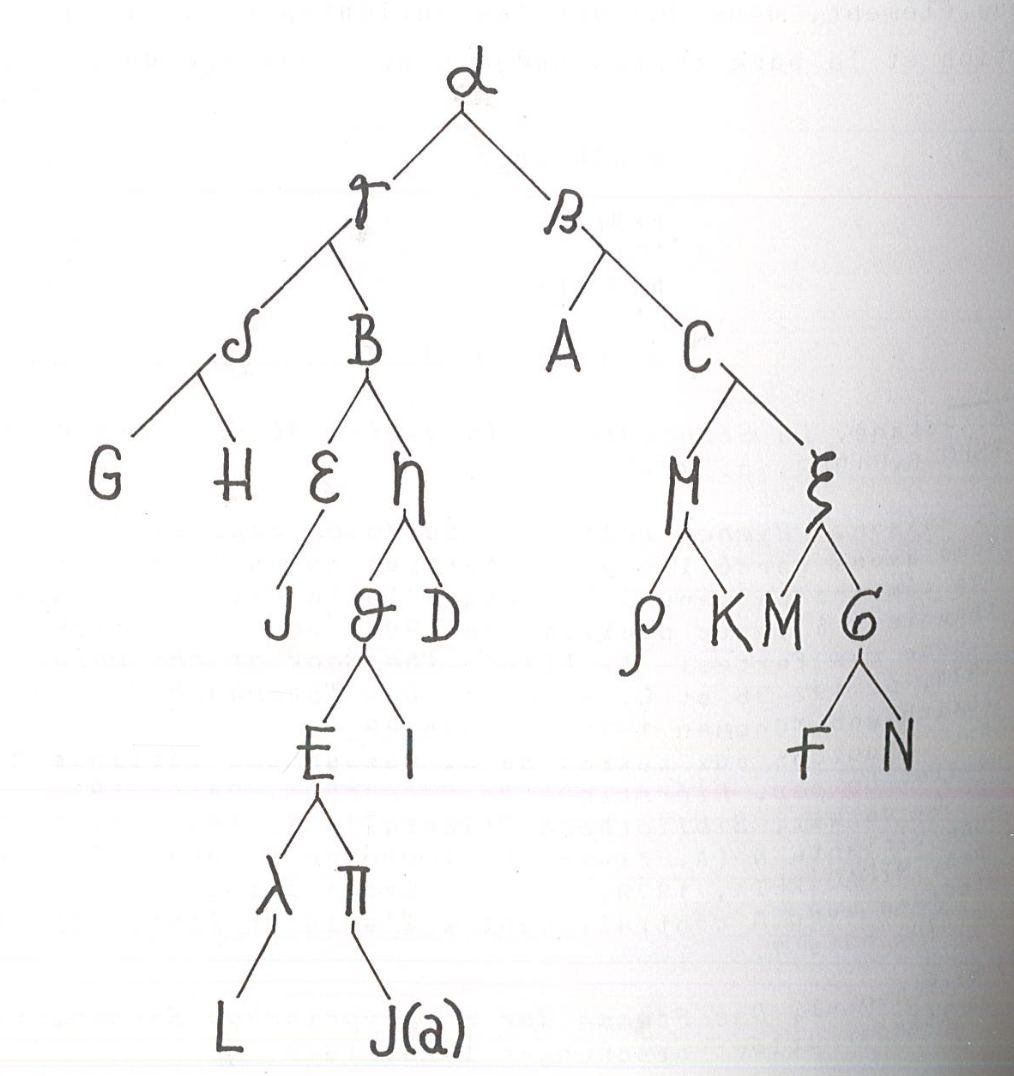 α
γ β
δ B A C
G H ε η M ξ
J θ D ρ K M G
E I F N
λ π
L J(a)